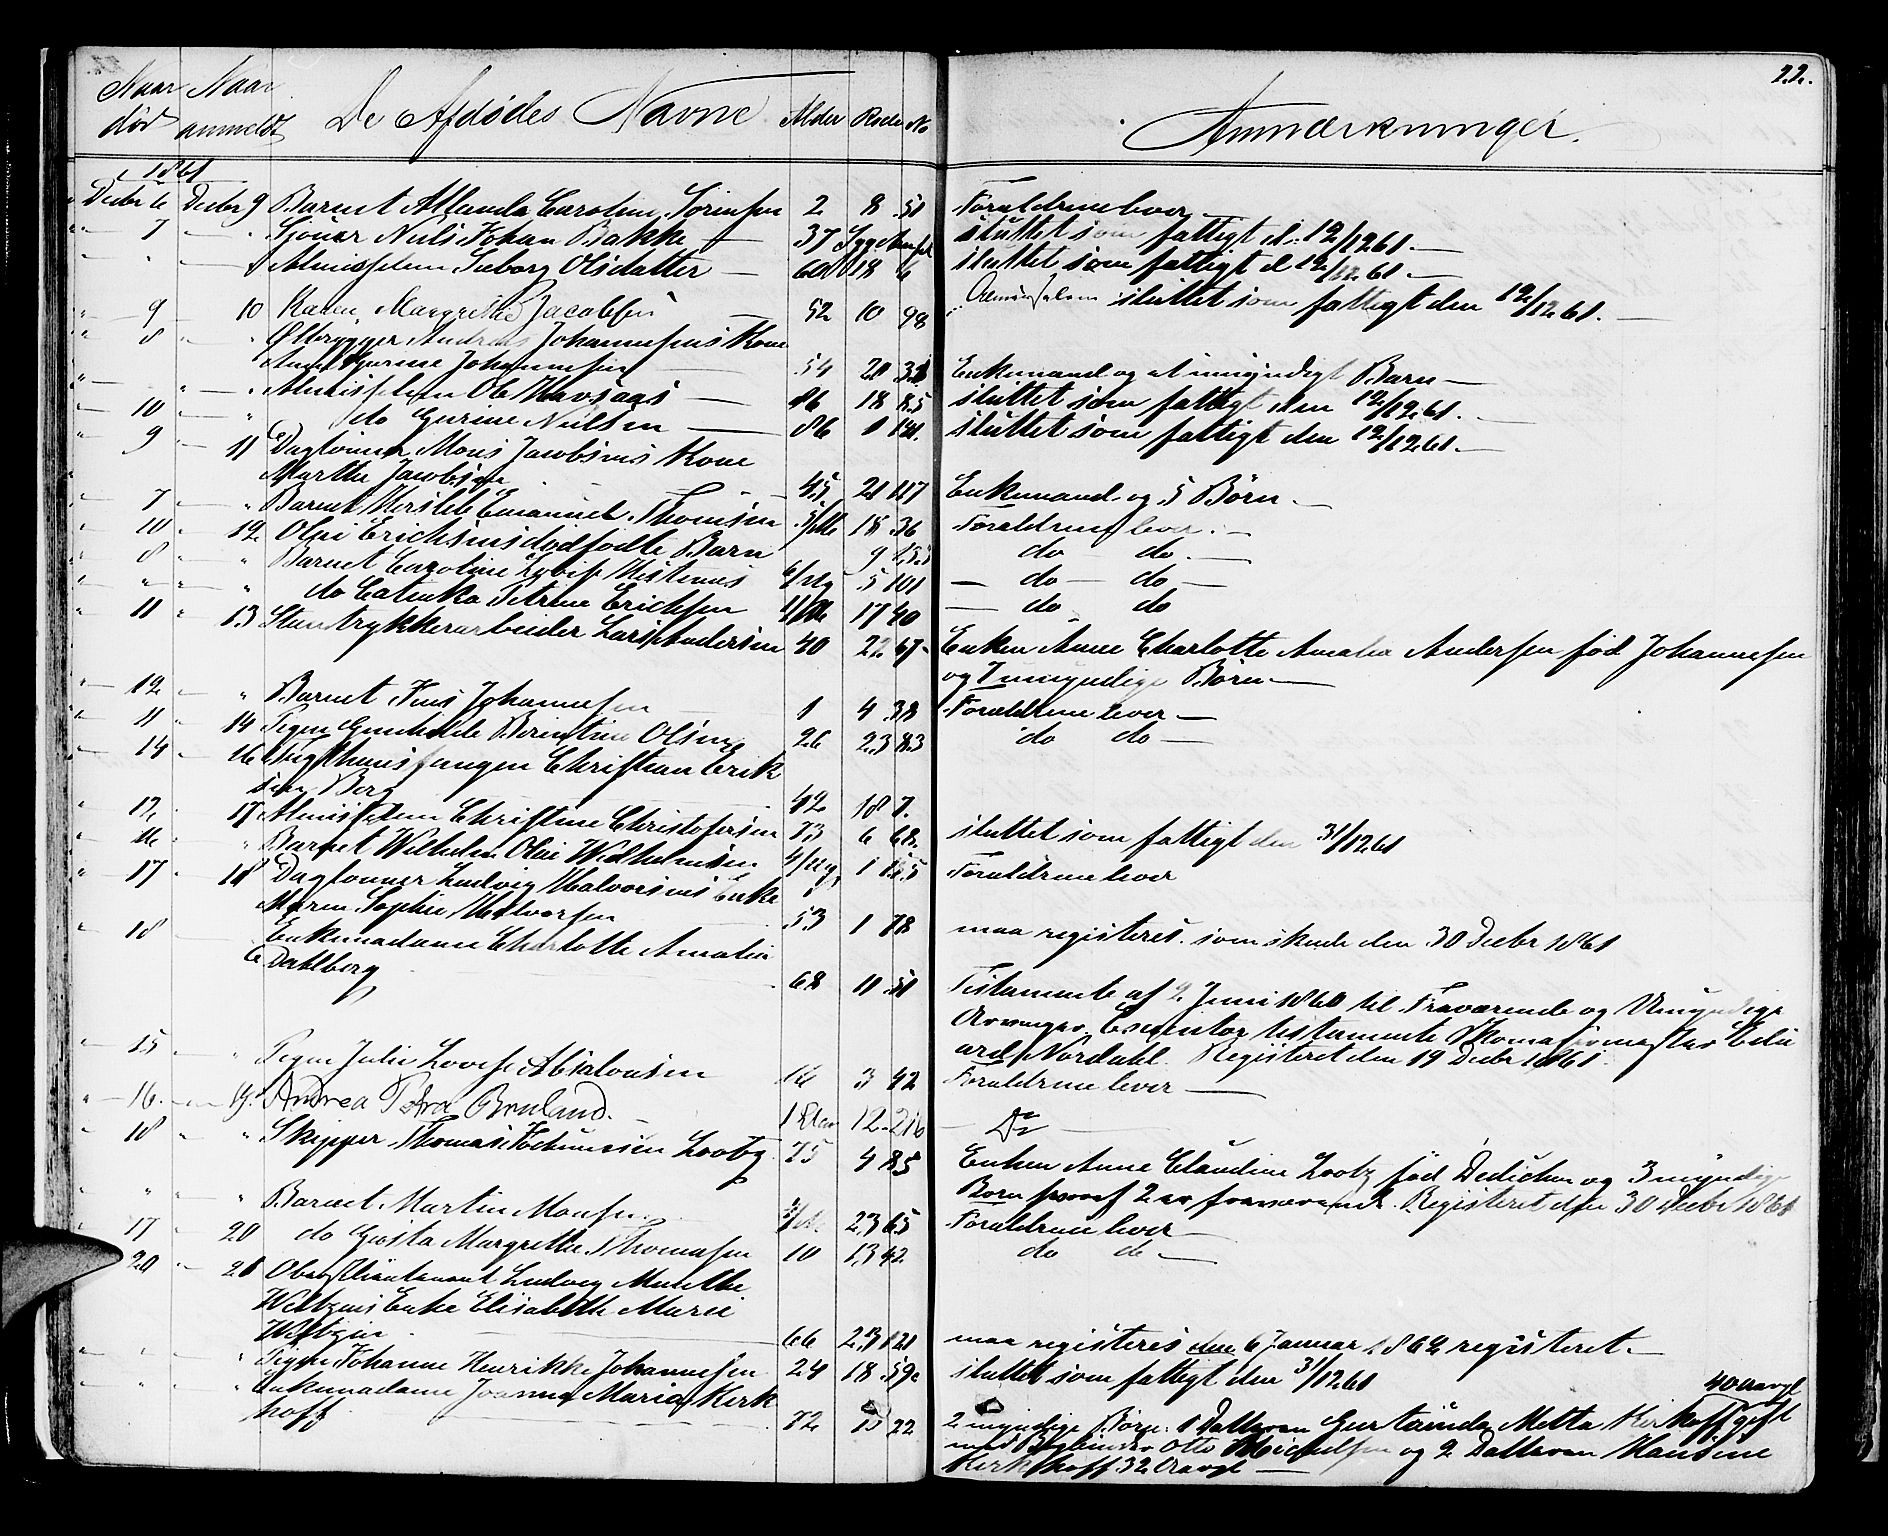 22.
Naar død Naar anmeldt De Afdødes Navne Alder Rode No Anmærkninger.
1861
Decbr 6 Decbr 9 Barnet Allanda Caroline Sørensen 2 8 51 Forældrene lever
" 7 — " Sjouer Niels Johan Bakke — 37 sluttet som fattigt d. 12/12 61. —
" " — " Almisselem Olsdatter — 60 18 6 sluttet som fattigt d 12/12 61. —
" 9 — 10 Karen Margrethe Jacobsen — 52 10 98 Almisselem sluttet som fattigt den 12/12 61. —
" 8 " " Ølbrygger Andreas Johannesens Kone
Johannesen 54 21 Enkemand og et umyndigt Barn —
" " " Almisselem Ole — 86 18 85 sluttet som fattigt den 12/12 61. —
" 10 " do Gurine Nielsen — 86 1 sluttet som fattigt den 12/12 61. —
" 9 " 11 Daglønner Mons Jacobsens Kone
Marthe Jacobsen — 45 21 117 Enkemand og 5 Børn —
" 7 — " Barnet Emanuel Thomsen 18 36 Forældrene lever. —
" 10 — 12 Olai Erichsens dødfødte Barn 9 do do. —
" 8 " " Barnet Caroline 5 101 — do — do —
" " " " do Cathinka Petrine Erichsen 17 40 — do do
" 11 " 13 Stentrykkerarbeider Lars Andersen 40 22 67 Enken Anne Charlotte Amalia Andersen fød Johannesen
og 7 umyndige Børn —
" 12 — " Barnet Johannesen 1 4 38 Forældrene lever —
" 11 " 14 Pigen Gunhilde Berentine Olsen 26 23 83 do do —
" 14 — 16 Christian Erik
sen Berg 42 18 7.
" 12 . 17 Almisselem Christine Christofersen 73 6 68 sluttet som fattigt den 31/12 61
" 16 . " Barnet Wilhelm Olai Wilhelmsen 1 Forældrene lever
" 17 . 18 Daglønner Ludvig Halvorsens Enke
Maren Sophie Halvorsen 53 1 78 maa registeres. som skede den 30 Decbr 1861
" 18 — Enkemadame Charlotte Amalia
Dahlberg 68 11 51 Testamente af 2 Juni 1860 til Fraværende og Umyndige
Arvinger. Executor testamente Edu
ard Nordahl. Registeret den 19 Decbr 1861.
" 15 — " Pigen Julie Lovise Absalonsen 3 42 Forældrene lever —
" 16. — 19. Andrea Petra 12 216 — Do —
" 18 " " Skipper Thomas Jochumsen Lootz 75 4 85 Enken Anne Claudine Lootz fød Dedichen og 3 myndige
Børn hvoraf 2 er fraværende. Registeret den 30 Decbr 1861
" " " Barnet Martin Monsen 23 65 Forældrene lever —
" 17 — 20 do Margrethe Thomasen 10 13 42 do do —
" 20 " 21 Oberstlieutenant Ludvig Munthe
Enke Elisabeth Marie
66 23 121 maa registeres den 6 Januar 1862 registeret. —
" " " Pigen Johanne Henrikke Johannesen 24 18 59 sluttet som fattigt den 31/12 61
" " " Enkemadame Joanna Maria Kirk
hoff — 72 22 2 myndige Børn: 1 Datteren Metta Kirkhoff gift 40 Aargl
med Otto Michelsen og 2 Datteren Hansine
Kirkhoff 32 Aargl —